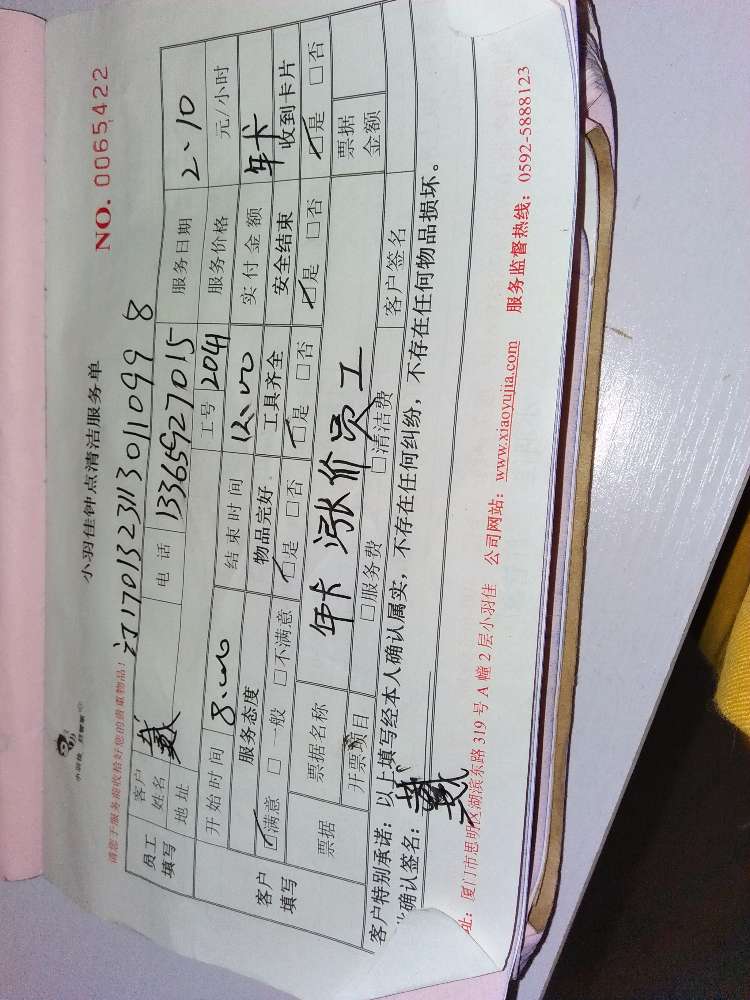 小羽佳 好管家
小羽佳钟点清洁服务单
NO. 0065422
请您于服务前收拾好您的贵重物品！
订170132311301109 9 8
员工填写 客户姓名 戴 电话 13365927015 服务日期 2、10
地址 工号 2041 服务价格 元/小时
开始时间 8:00 结束时间 12:00 实付金额 年卡
客户填写 服务态度 物品完好 工具齐全 安全结束 收到卡片
☑满意 □一般 □不满意 ☑是 □否 ☑是 □否 ☑是 □否 ☑是 □否
年卡涨价员工
票据 票据名称 票据金额
开票项目 □服务费 □清洁费 客户签名
客户特别承诺：以上填写经本人确认属实，不存在任何纠纷，不存在任何物品损坏。
确认签名：戴
址：厦门市思明区湖滨东路319号A幢2层小羽佳 公司网站：www.xiaoyujia.com 服务监督热线：0592-5888123